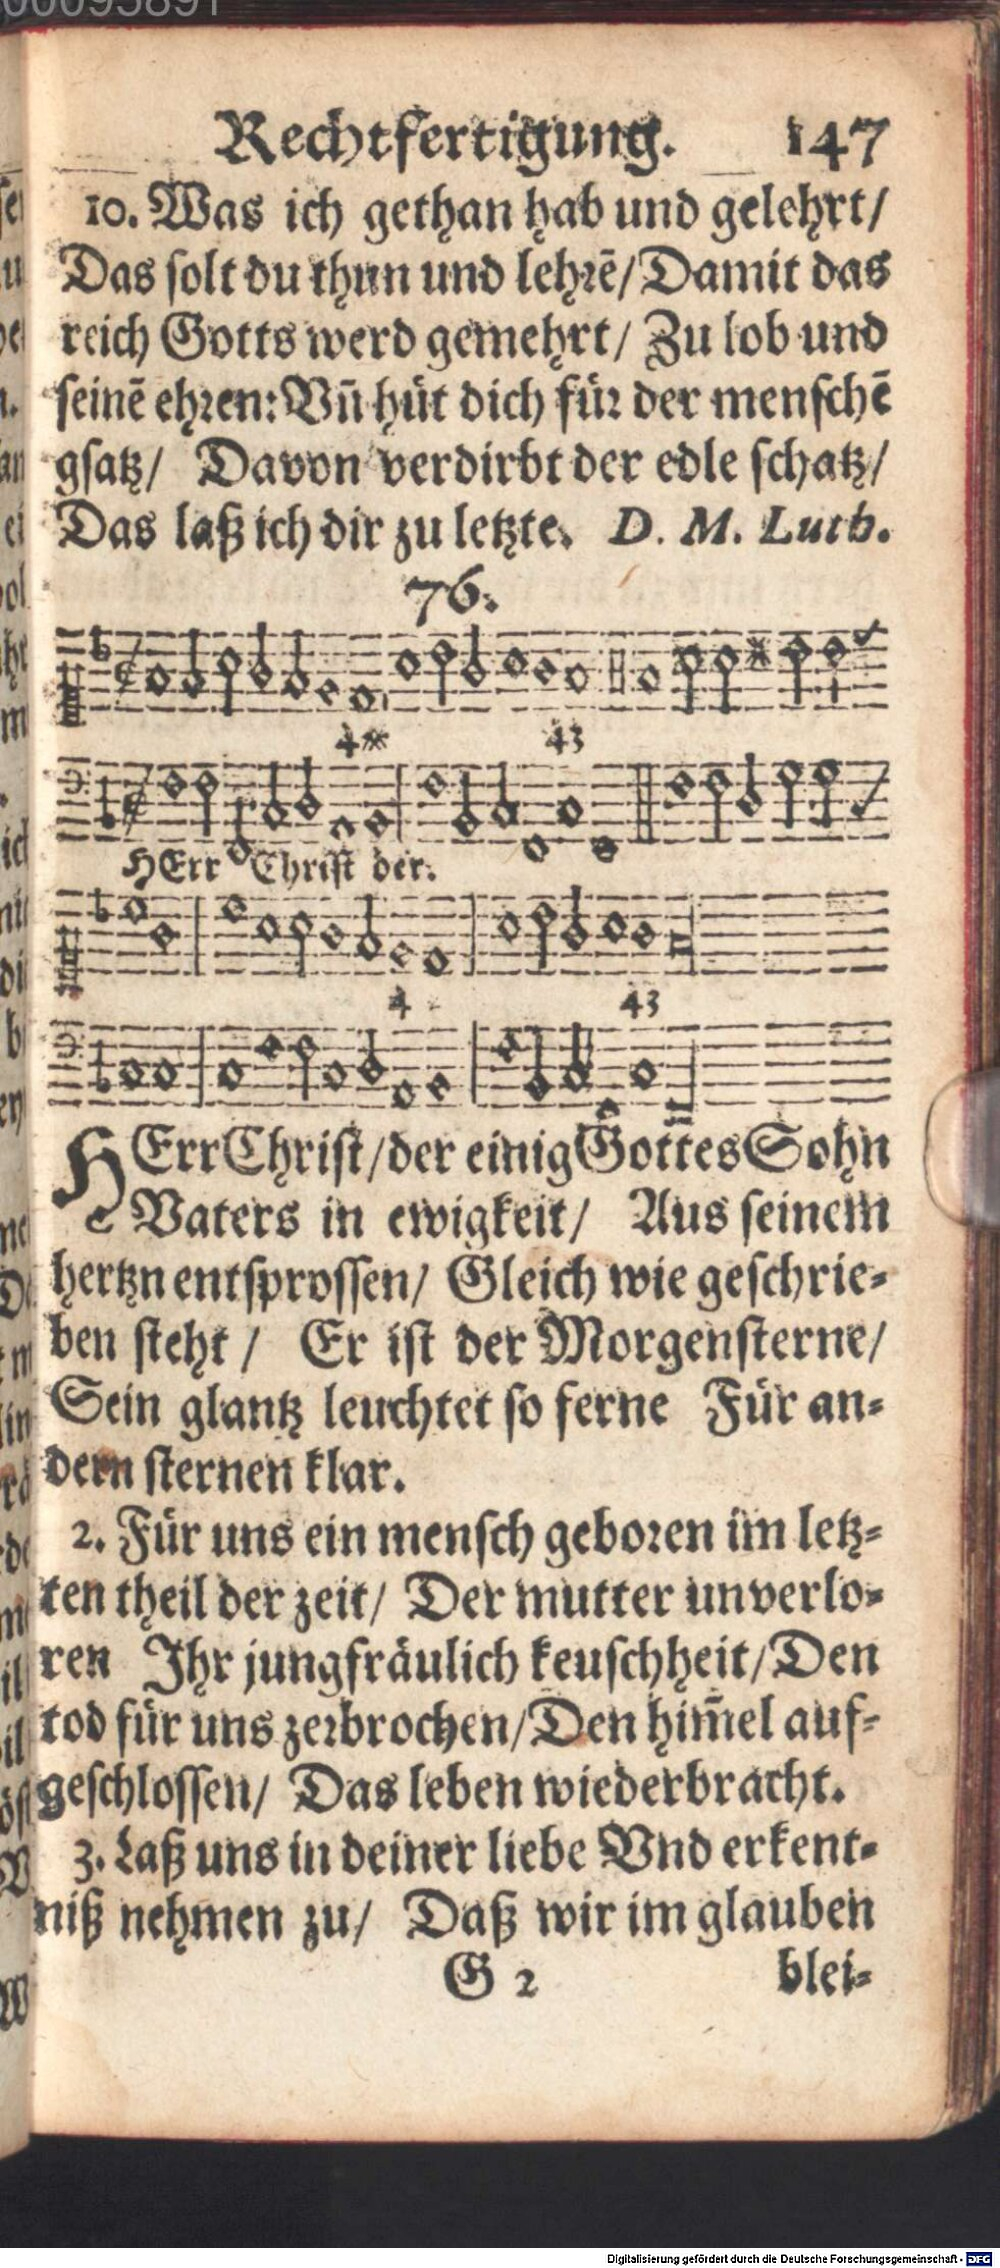 Rechtfertigung. 147
10. Was ich gethan hab und gelehrt/
Das solt du thun und lehrē/ Damit das
reich Gotts werd gemehrt/ Zu lob und
seinē ehren: Vn̄ hüt dich für der menschē
gsatz/ Davon verdirbt der edle schatz/
Das laß ich dir zu letzte. D. M. Luth.
76.
4* 43
HErr Christ der.
4 43
HErr Christ/ der einig Gottes Sohn
Vaters in ewigkeit/ Aus seinem
hertzn entsprossen/ Gleich wie geschrie-
ben steht/ Er ist der Morgensterne/
Sein glantz leuchtet so ferne Für an-
dern sternen klar.
2. Für uns ein mensch geboren im letz-
ten theil der zeit/ Der mutter unverlo-
ren Ihr jungfräulich keuschheit/ Den
tod für uns zerbrochen/ Den him̄el auf-
geschlossen/ Das leben wiederbracht.
3. Laß uns in deiner liebe Vnd erkent-
niß nehmen zu/ Daß wir im glauben
G 2 blei-
Digitalisierung gefördert durch die Deutsche Forschungsgemeinschaft - DFG